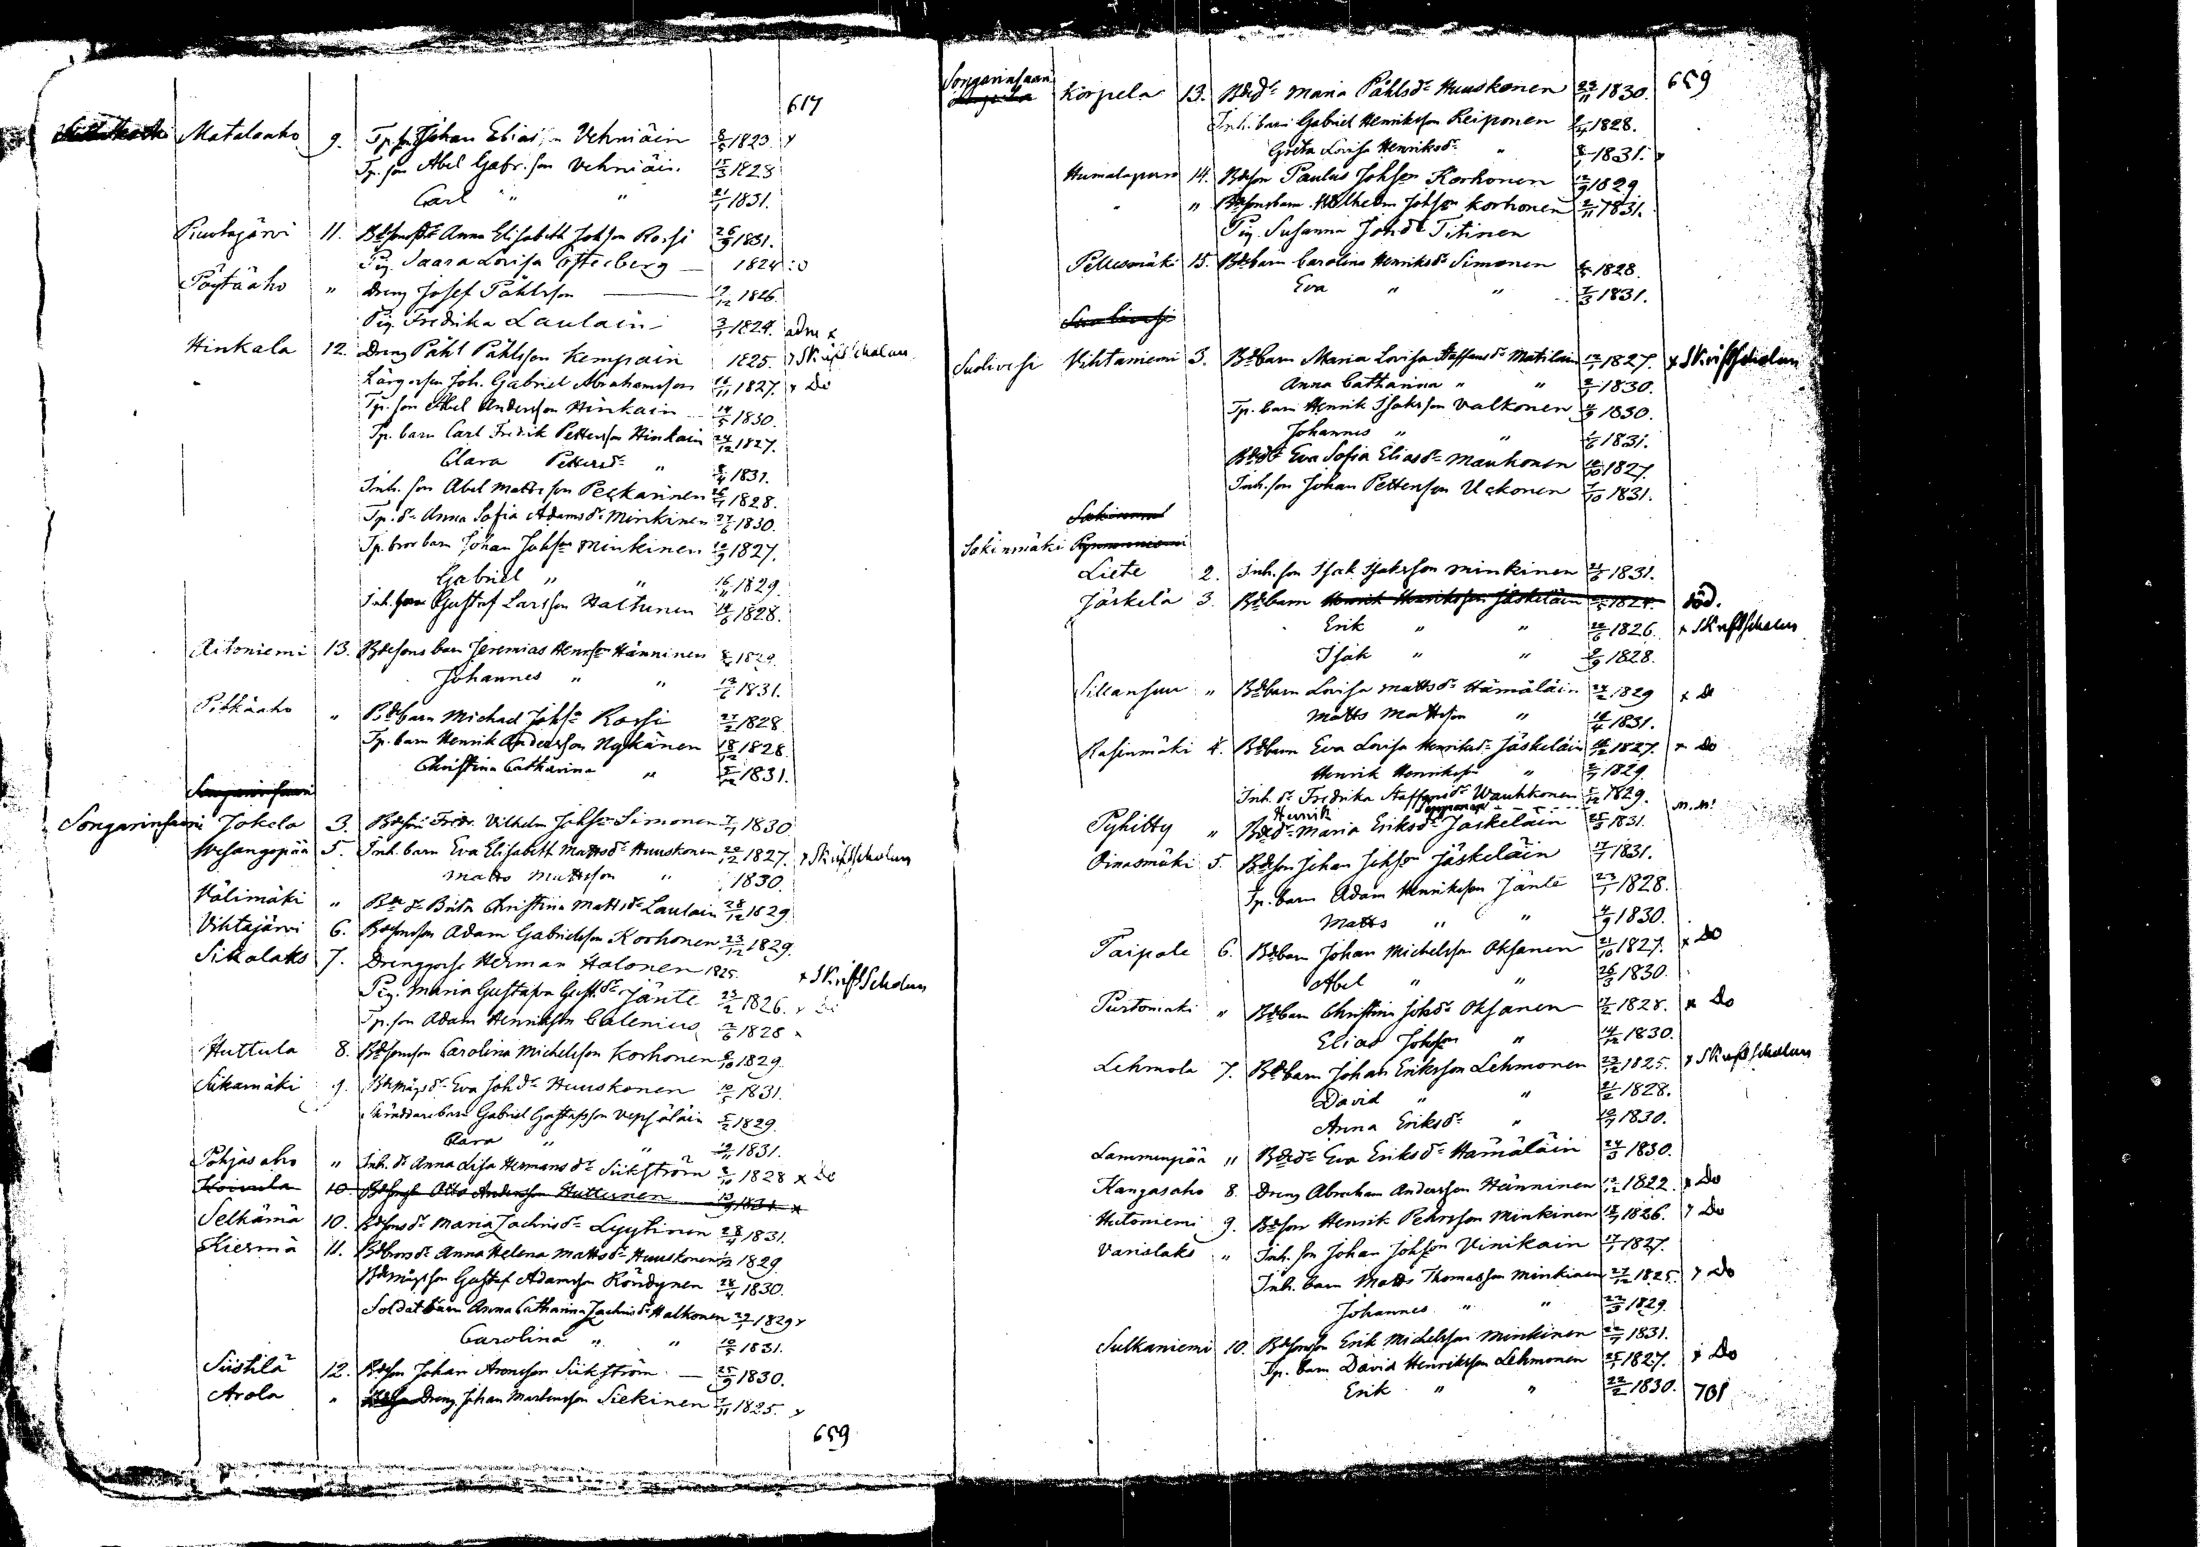 617
Matalaaho 9. Tp. son Johan Eliass:n Vehniäin 8/5 1823. x
Tp. son Abel Gabr. son Vehniäin. 15/3 1828
Carl " " 21/1 1831.
Ruutajärvi 11. Bdesonsdr Anna Elisabeth Johsson Rossi 26/9 1831.
Pig. Saara Lovisa Österberg — 1824
Pöytäaho " Dreng Josef Påhlsson — 19/12 1826.
Pig. Fredrika Laulain 3/1 1824. adm x
Hinkala 12. Dreng Påhl Påhlsson Kempain 1825. x Skriftskolan
Lärgossen Joh. Gabriel Abrahamsson 16/11 1827. x Do
Tp. son Abel Andersson Hinkain 14/5 1830.
Tp. barn Carl Fredrik Pettersson Hinkain 24/12 1827.
Clara Pettersdr " 8/4 1831.
Inh. son Abel Mattsson Peckarinen 26/1 1828.
Tp. dr Anna Sofia Adamsdr Minkinen 27/6 1830.
Tp. bror barn Johan Johsson Minkinen 10/9 1827.
Gabriel " " 16/11 1829.
Inh. son Gustaf Larsson Haltunen 14/6 1828.
Aitoniemi 13. Bdesons barn Jeremias Henrsson Hänninen 1829.
Johannes " " 12/6 1831.
Pitkäaho " Bdebarn Michael Johsson Rossi 27/2 1828
Tp. barn Henrik Andersson Nykänen 18/12 1828
Christina Catharina " 5/12 1831.
Songarinsaari
Songarinsaari Jokela 3. Bdeson Fredr. Vilhelm Johsson Simonen 7/1 1830
Wesangopää 5. Inh. barn Eva Elisabeth Mattsdr Huuskonen 20/12 1827. x Skriftskolan
Matts Mattsson " 1830.
Välimäki " Bde dr Brita Christina Mattsdr Laulain 28/12 1829
Vihtajärvi 6. Bdesonson Adam Gabrielsson Korhonen 23/12 1829.
Sikalaks 7. Drenggosse Herman Halonen 1825. x Skriftskolan
Pig. Maria Gustafva Gust.dr Jänte 23/2 1826. x Do
Tp. son Adam Henriksson Calenius 2/6 1828 x
Huttula 8. Bdesonson Carolina Michelsson Korhonen 6/10 1829.
Siikamäki 9. Bdemågs dr Eva Joh dr Huuskonen 10/5 1831.
Skräddarebarn Gabriel Gustafsson Vepsäläin 5/2 1829.
Clara " " 19/11 1831.
Pohjasaho " Inh. dr Anna Lisa Hermansdr Siikström 8/10 1828 x Do
Koivula 10. Bdesons Otto Andersson Huttunen 13/9 1831. x
Selkämä 10. Bdesonsdr Maria Zachrisdr Lyytinen 28/4 1831.
Kiermä 11. Bdebrorsdr Anna Helena Mattsdr Huuskonen 1829
Bdemågsson Gustaf Adamsson Röndynen 28/4 1830.
Soldat barn Anna Catharina Zachrisdr Halkonen 27/1 1829 x
Carolina " " 10/5 1831.
Siistilä 12. Bdeson Johan Aronsson Siikström — 25/9 1830.
Arola " Dreng Johan Martensson Siekinen 7/11 1825. x
659
Songarinsaari Korpela 13. Bdedr Maria Påhlsdr Huuskonen 23/11 1830. 659
Inh. barn Gabriel Henriksson Reiponen 1828.
Greta Lovisa Henriksdr " 8/1 1831. x
Humalapuro 14. Bdeson Paulus Johsson Korhonen 12/9 1829.
" " Bdesonsbarn Wilhelm Johsson Korhonen 2/11 1831.
Pig. Susanna Johdr Titinen
Pellesmäki 15. Bdebarn Carolina Henriksdr Simonen 1828.
Eva " " 7/3 1831.
Suolivesi
Suolivesi Vihtaniemi 3. Bdebarn Maria Lovisa Staffansdr Matilain 12/1 1827. x Skriftskolan
Anna Catharina " " 2/1 1830.
Tp. barn Henrik Isaksson Valkonen 1830.
Johannes " " 1/6 1831.
Bdedr Eva Sofia Eliasdr Maukonen 18/10 1827.
Inh. son Johan Pettersson Uckonen 7/10 1831.
Sokinmäki
Liete 2. Inh. son Isak Isaksson Minkinen 21/6 1831.
Jäskelä 3. Bdebarn Henrik Henriksson Jäskeläin 1824. död.
Erik " " 22/6 1826. x Skriftskolan
Isak " " 2/9 1828.
Sillansuu " Bdebarn Lovisa Mattsdr Hämäläin 24/2 1829 x Do
Matts Mattsson " 18/4 1831.
Rasinmäki 4. Bdebarn Eva Lovisa Henriksdr Jäskeläin 1827. x Do
Henrik Henriksson " 1829.
Inh. dr Fredrika Staffansdr Wauhkonen 5/12 1829.
Pyhitty " Bdedr Maria Eriksdr Jäskeläin 25/3 1831. n.n!
Henrik
Oinasmäki 5. Bdeson Johan Johsson Jäskeläin 17/1 1831.
Tp. barn Adam Henriksson Jänte 23/1 1828.
Matts " " 4/9 1830.
Taipale 6. Bdebarn Johan Michelsson Oksanen 21/10 1827. x Do
Abel " " 26/3 1830.
Purtomäki " Bdebarn Christina Johsdr Oksanen 17/2 1828. x Do
Elias Johsson " 14/12 1830.
Lehmola 7. Bdebarn Johan Eriksson Lehmonen 23/12 1825. x Skriftskolan
David " " 21/2 1828.
Anna Eriksdr " 10/7 1830.
Lammenpää " Bdedr Eva Eriksdr Hämäläin 24/3 1830.
Kangasaho 8. Dreng Abraham Andersson Hänninen 13/12 1822. x Do
Hutoniemi 9. Bdeson Henrik Pehrsson Minkinen 18/7 1826. x Do
Varislaks " Inh. son Johan Johsson Vinikain 17/1 1827.
Inh. barn Matts Thomasson Minkinen 27/12 1825. x Do
Johannes " " 22/3 1829.
Sulkaniemi 10. Bdesonson Erik Michelsson Minkinen 22/7 1831.
Tp. barn David Henriksson Lehmonen 25/1 1827. x Do
Erik " " 22/2 1830. 701